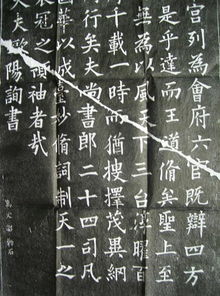 宮列為會府六官既辯四方
是乎達而王道脩矣聖上至
無為以風天下三台淳曜百
千載一時而猶搜擇茂異網
行矣夫尚書郎二十四司凡
華以成臺妙脩詞制天一之
衣冠之領袖者哉
大夫歐陽詢書